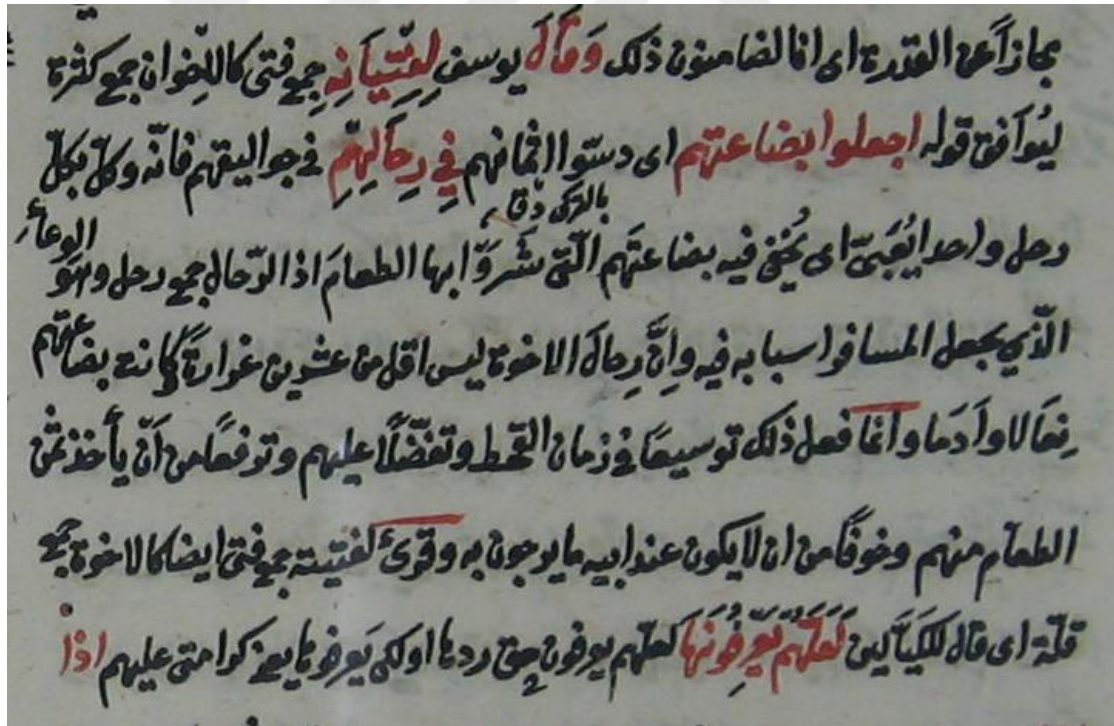 مجازاً عن القدرة اى انا لضامنون ذلك وَقَالَ يوسف لِفِتْيَانِهِ جمع فتى كالاِخوان جمع كثرة
ليُوافق قوله اجعلوا بضاعتهم اى دسّوا اثمانهم فِي رِحَالِهِمْ فى جواليقهم فانّه وكّل بكلّ
بالتركى
رحل واحدا يُعَبّىّ اى يُخفى فيه بضاعتَهم الّتى شَرَوْا بها الطعامَ اذ الرّحال جمع رحل وهو الوعاء
الّذي يجعل المسافر اسبابه فيه وانَّ رِحالَ الاخوة ليس اقل من عشرين غرارةً وكانت بضاعتهم
نِعَالا واَدَما وانما فعل ذلك توسيعًا فى زمان القحط وتفضّلًا عليهم وترفعًا من اَنْ يأخذ ثمن
الطعام منهم وخوفًا من ان لا يكون عند ابيه ما يرجعون به وقرئ لفتيته جمع فتى ايضا كالاخوة جمع
قلّة اى قال للكيّالين لَعَلَّهُمْ يَعْرِفُونَهَا لعلّهم يعرفون حق ردها او لكى يَعرفوها يعنى كرامتى عليهم اذا